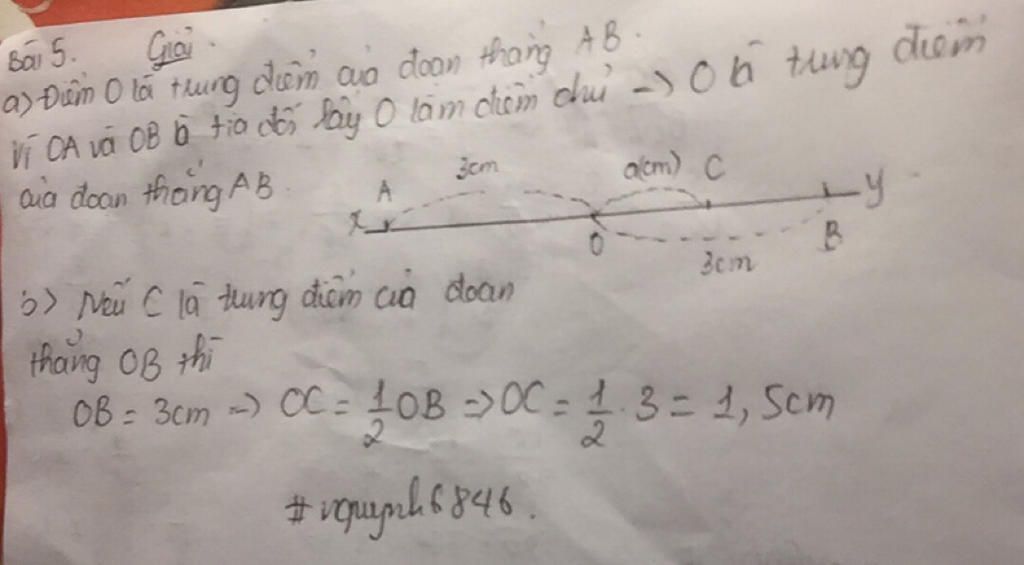 Bài 5. Giải.
a) Điểm O là trung điểm của đoạn thẳng AB.
Vì OA và OB là tia đối lấy O làm điểm chủ => O là trung điểm
của đoạn thẳng AB.
3cm a(cm) C
A
x O B y
3cm
b) Nếu C là trung điểm của đoạn
thẳng OB thì
OB = 3cm => OC = 1/2 OB => OC = 1/2 . 3 = 1,5cm
#vquynh6846.